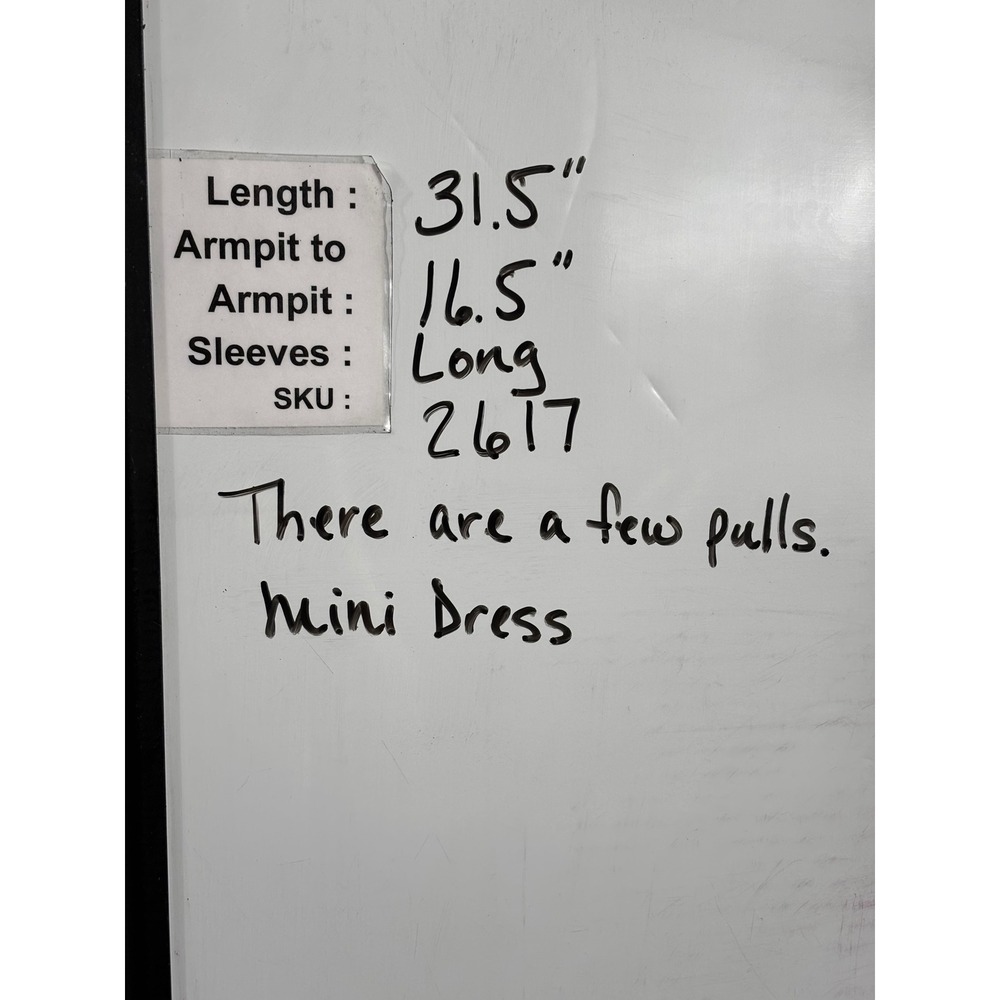 Length : 31.5"
Armpit to
Armpit : 16.5"
Sleeves : Long
SKU : 2617
There are a few pulls.
Mini Dress